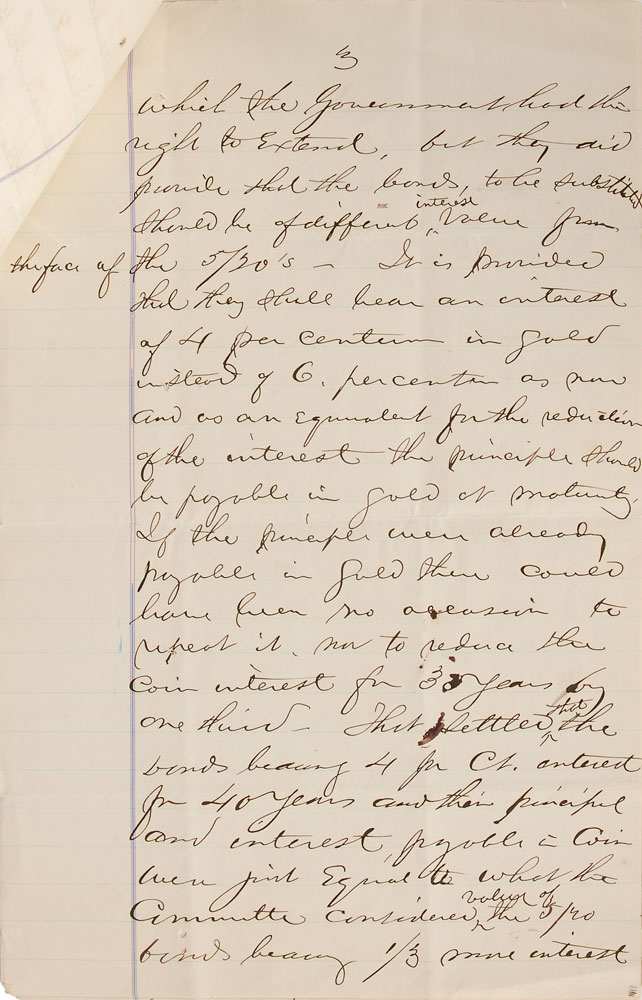 3
which the Government had the
right to Extend, but they did
provide that the bonds, to be substituted
should be of different interest value from
the face of the 5/20's — It is provided
that they shall bear an interest
of 4 per centum in gold
instead of 6. per centum as now
and as an equivalent for the reduction
of the interest the principle should
be payable in gold at maturity.
If the principle were already
payable in gold there could
have been no occasion to
repeat it, nor to reduce the
Coin interest for years by
one third — That settled that the
bonds bearing 4 per Ct. interest
for 40 years and their principal
and interest payable in Coin
were just Equal to what the
Committee considered value of the 5/20
bonds bearing 1/3 more interest